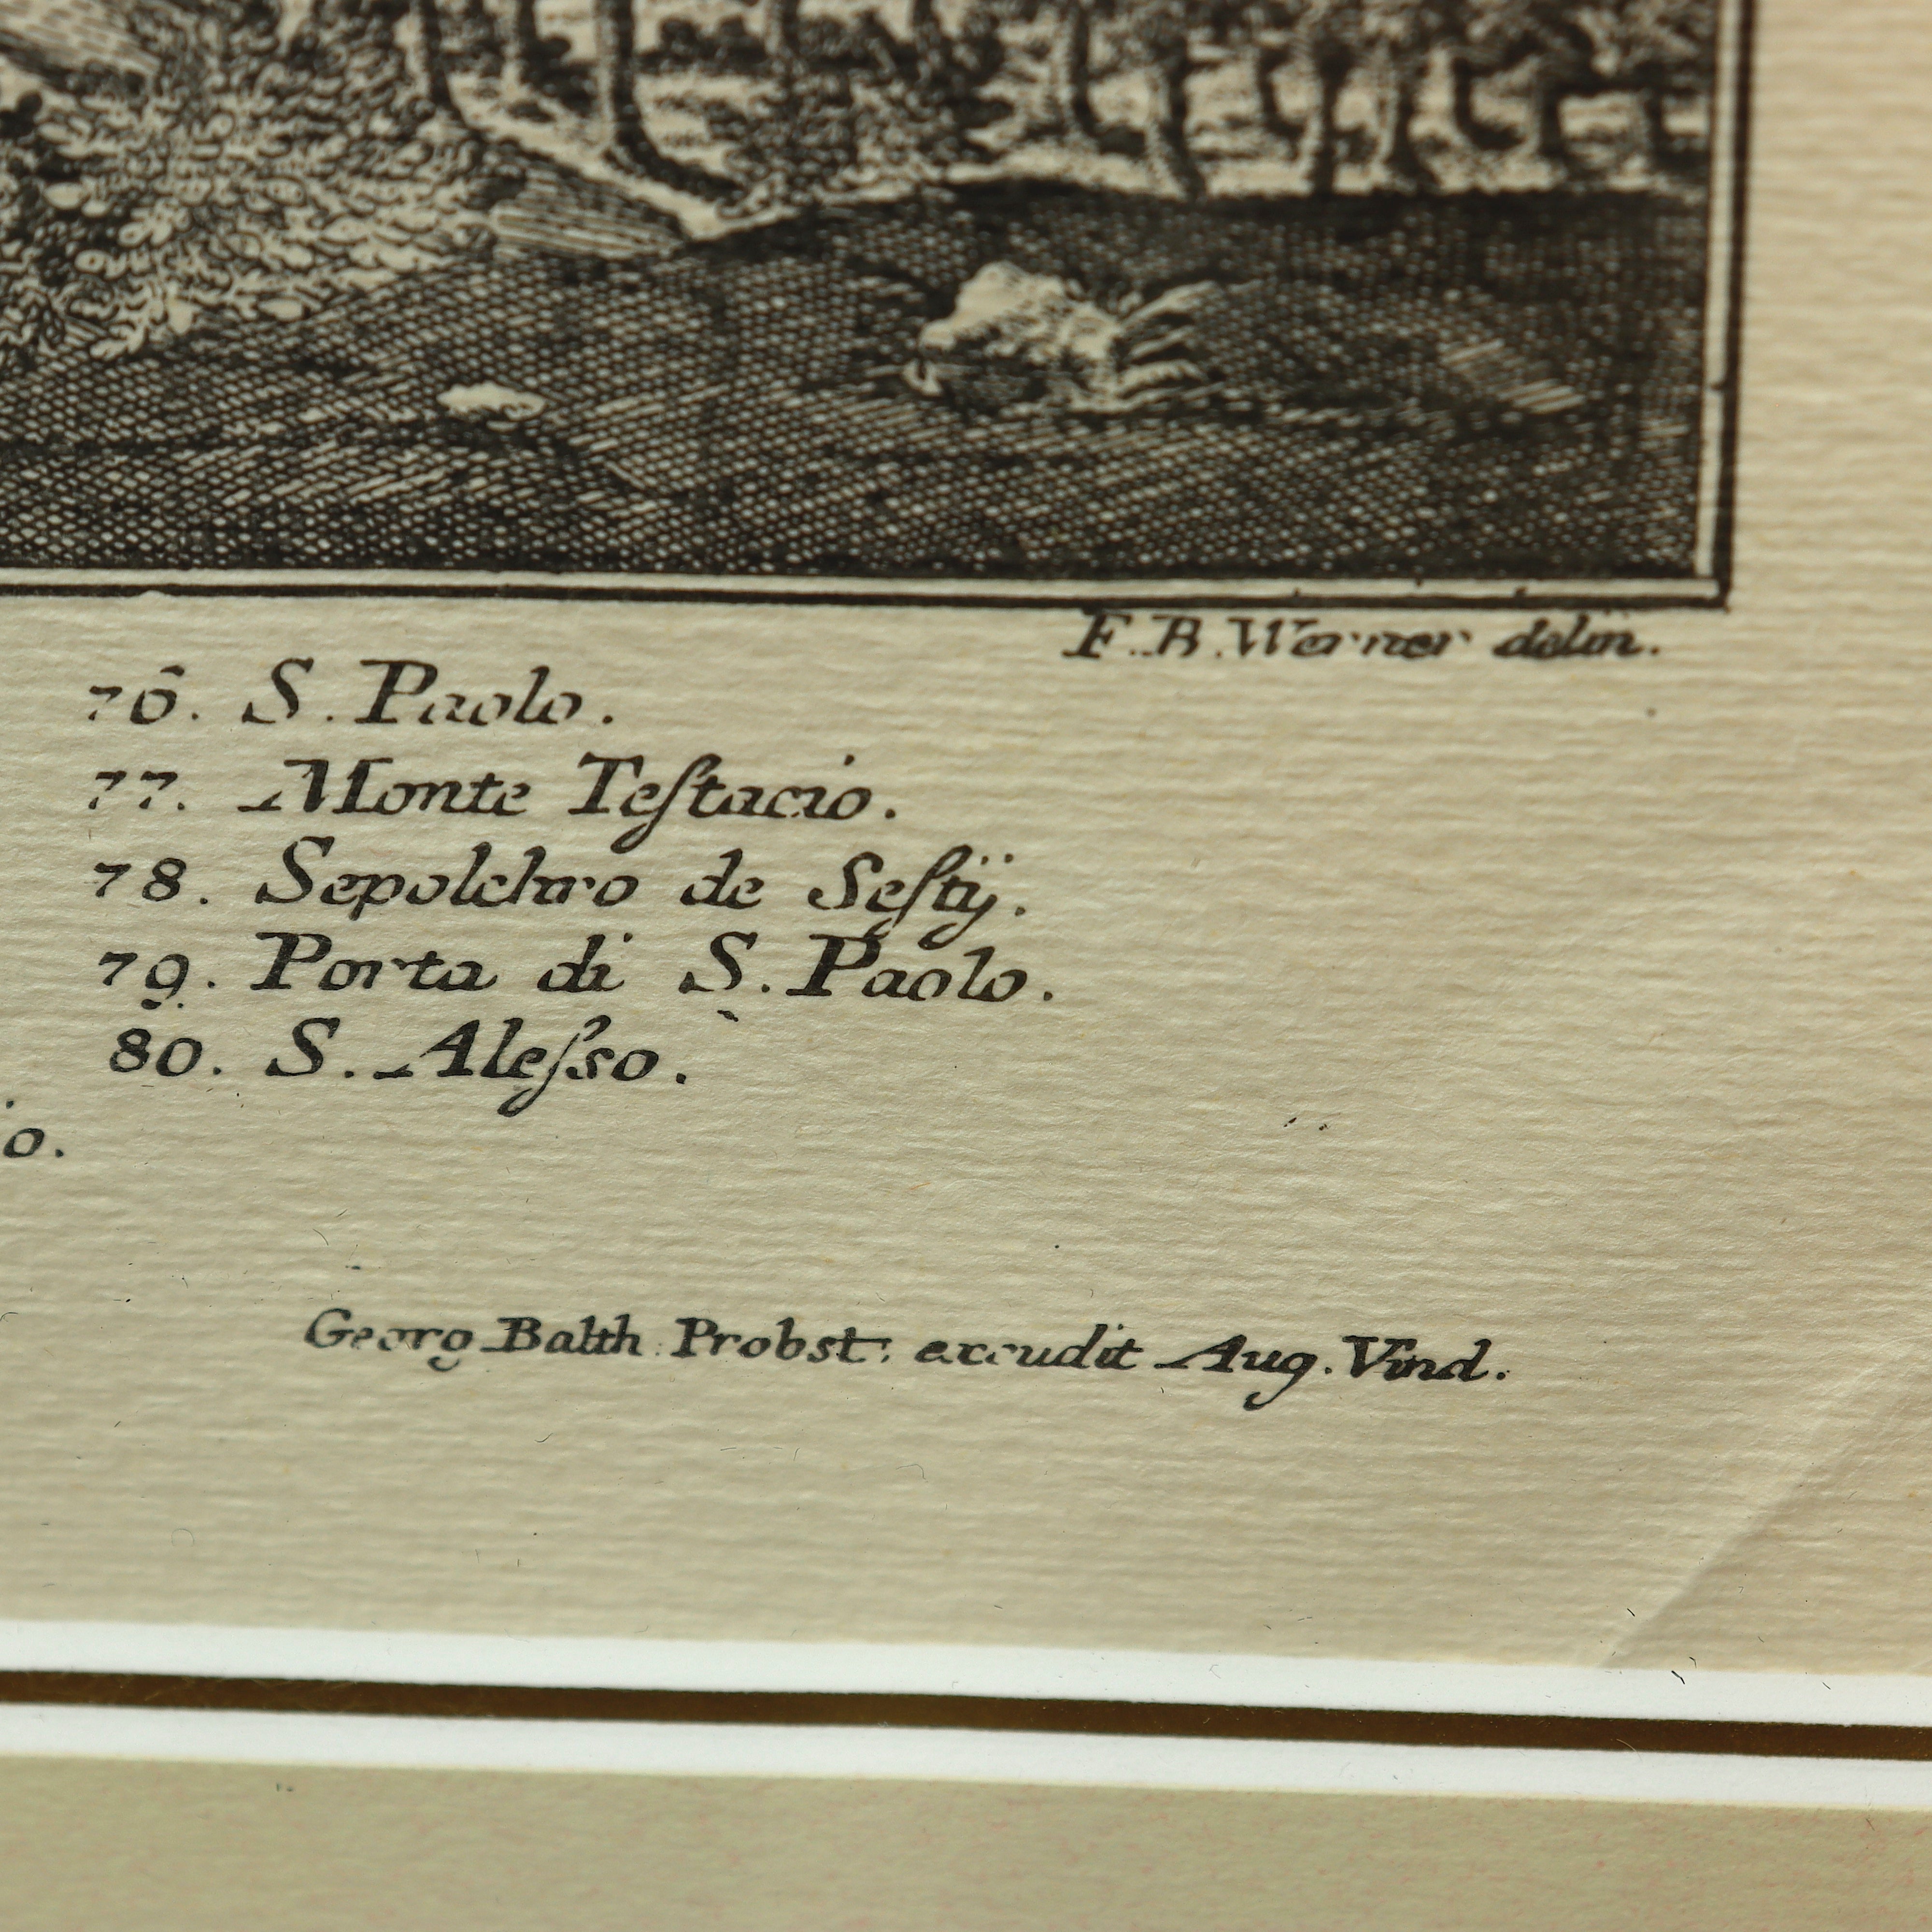 F. B. Werner delin.
76. S. Paolo.
77. Monte Teſtacio.
78. Sepolchro de Seſtij.
79. Porta di S. Paolo.
80. S. Aleſso.
io.
Georg Balth. Probst. excudit Aug. Vind.